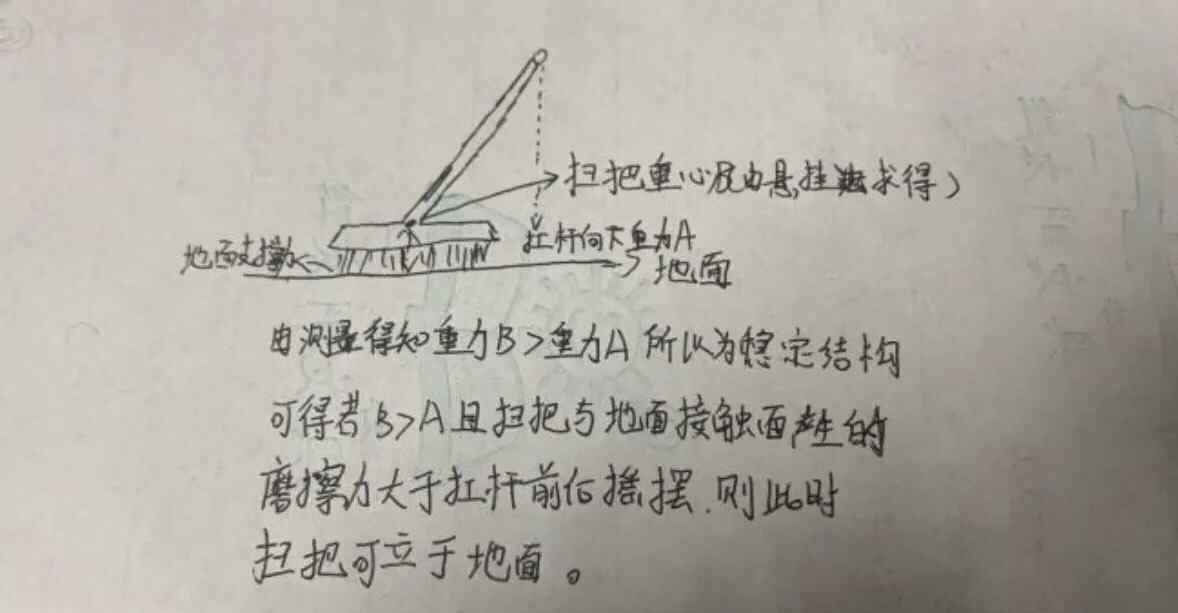 扫把重心(由悬挂法求得)
杠杆向下重力A
地面支撑力
地面
由测量得知重力B>重力A 所以为稳定结构
可得若B>A且扫把与地面接触面产生的
磨擦力大于杠杆前后摇摆.则此时
扫把可立于地面。